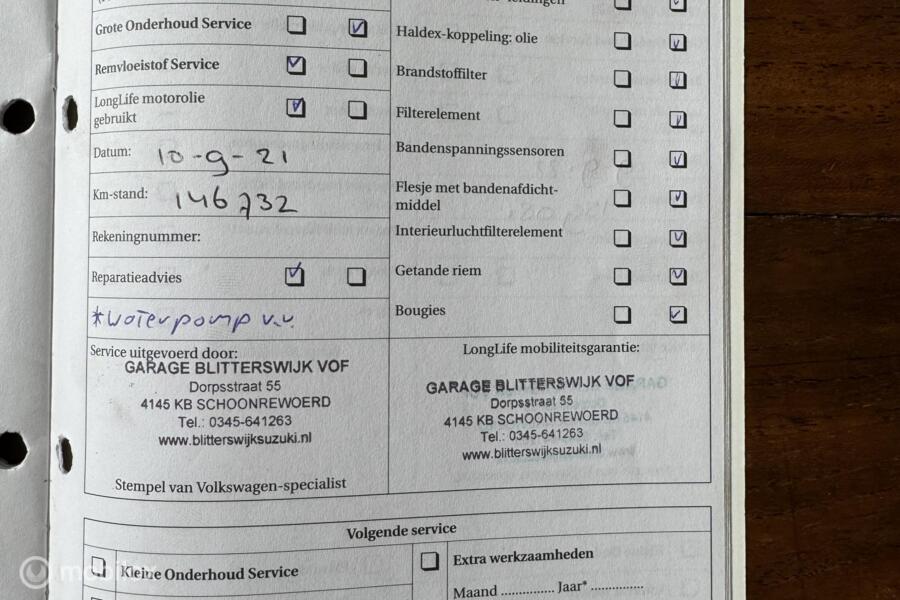 Grote Onderhoud Service
Remvloeistof Service
LongLife motorolie
gebruikt
Datum: 10-9-21
Km-stand: 146732
Rekeningnummer:
Reparatieadvies
*Waterpomp v.v.
Service uitgevoerd door:
GARAGE BLITTERSWIJK VOF
Dorpsstraat 55
4145 KB SCHOONREWOERD
Tel.: 0345-641263
www.blitterswijksuzuki.nl
Stempel van Volkswagen-specialist
Haldex-koppeling: olie
Brandstoffilter
Filterelement
Bandenspanningssensoren
Flesje met bandenafdicht-
middel
Interieurluchtfilterelement
Getande riem
Bougies
LongLife mobiliteitsgarantie:
GARAGE BLITTERSWIJK VOF
Dorpsstraat 55
4145 KB SCHOONREWOERD
Tel.: 0345-641263
www.blitterswijksuzuki.nl
Volgende service
Kleine Onderhoud Service
Extra werkzaamheden
Maand .............. Jaar* ..............